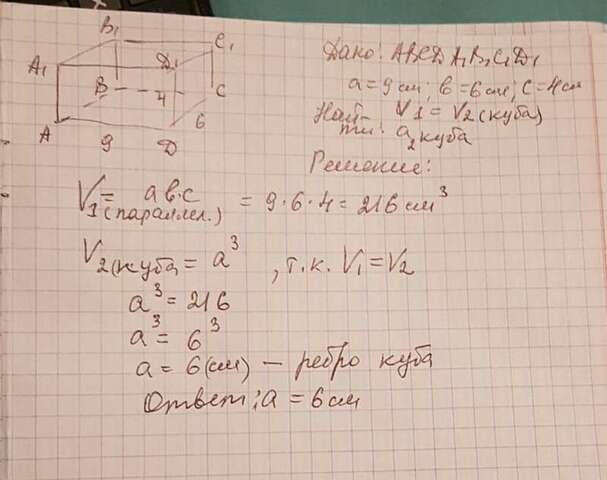 B₁
C₁
A₁
D₁
B
4
C
6
A
9
D
Дано: ABCDA₁B₁C₁D₁
a=9 см; в=6 см; c=4 см
Най- V₁ = V₂ (куба)
ти: a₂ куба
Решение:
V₁ (параллел.) = a в·c = 9·6·4 = 216 см³
V₂(куба) = a³, т.к. V₁=V₂
a³ = 216
a³ = 6³
a = 6(см) — ребро куба
Ответ: a = 6 см